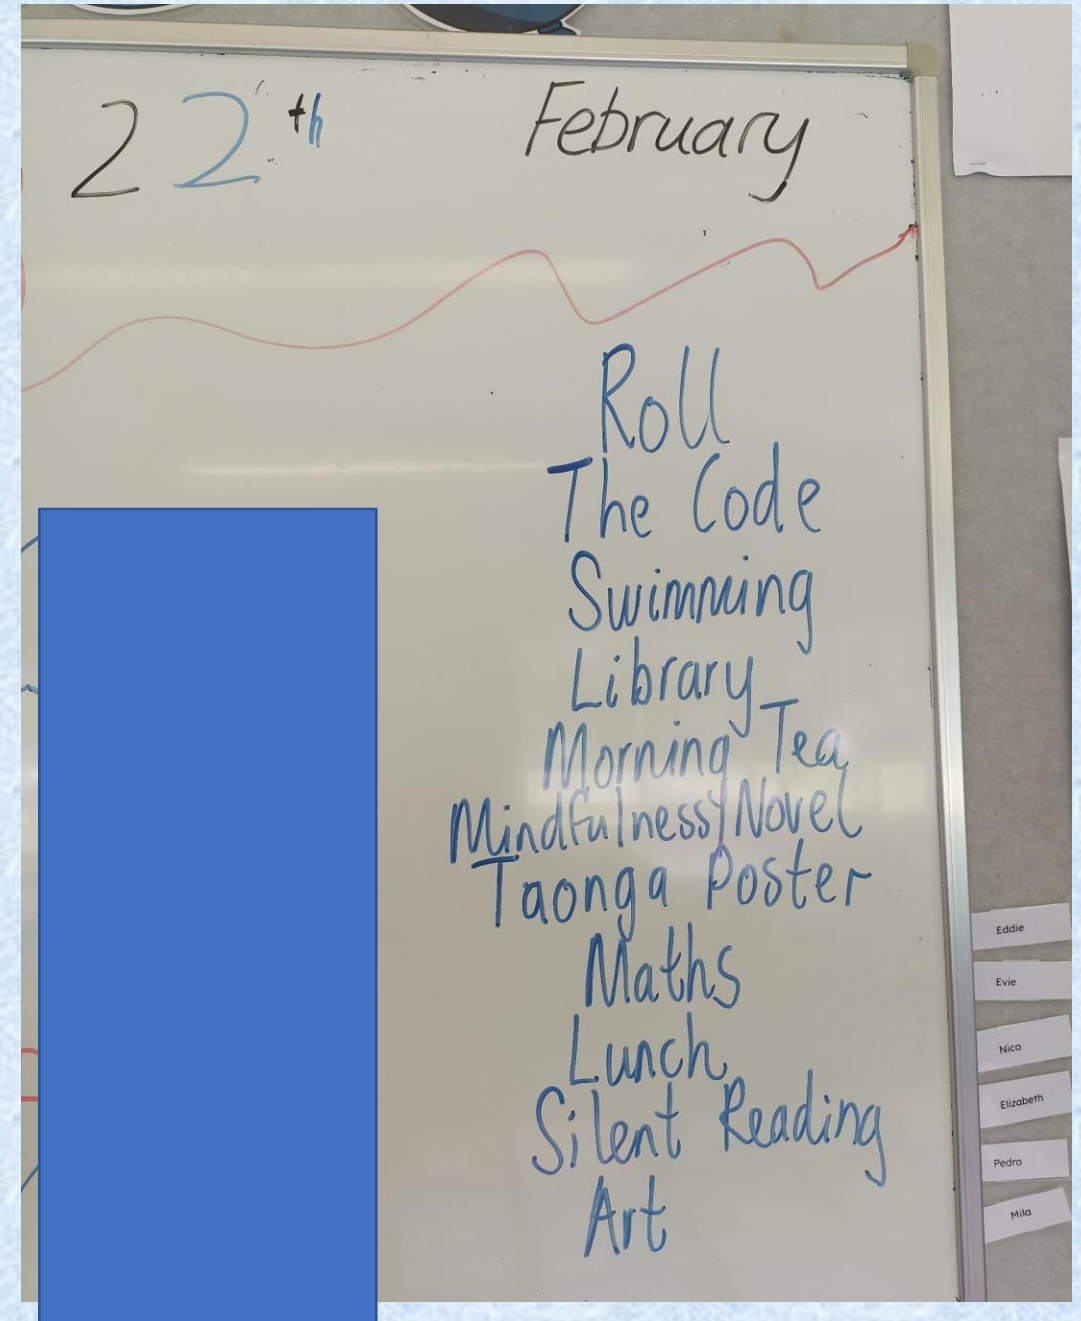 22th February
Roll
The Code
Swimming
Library
Morning Tea
Mindfulness/Novel
Taonga Poster
Maths
Lunch
Silent Reading
Art
Eddie
Evie
Nico
Elizabeth
Pedro
Mila